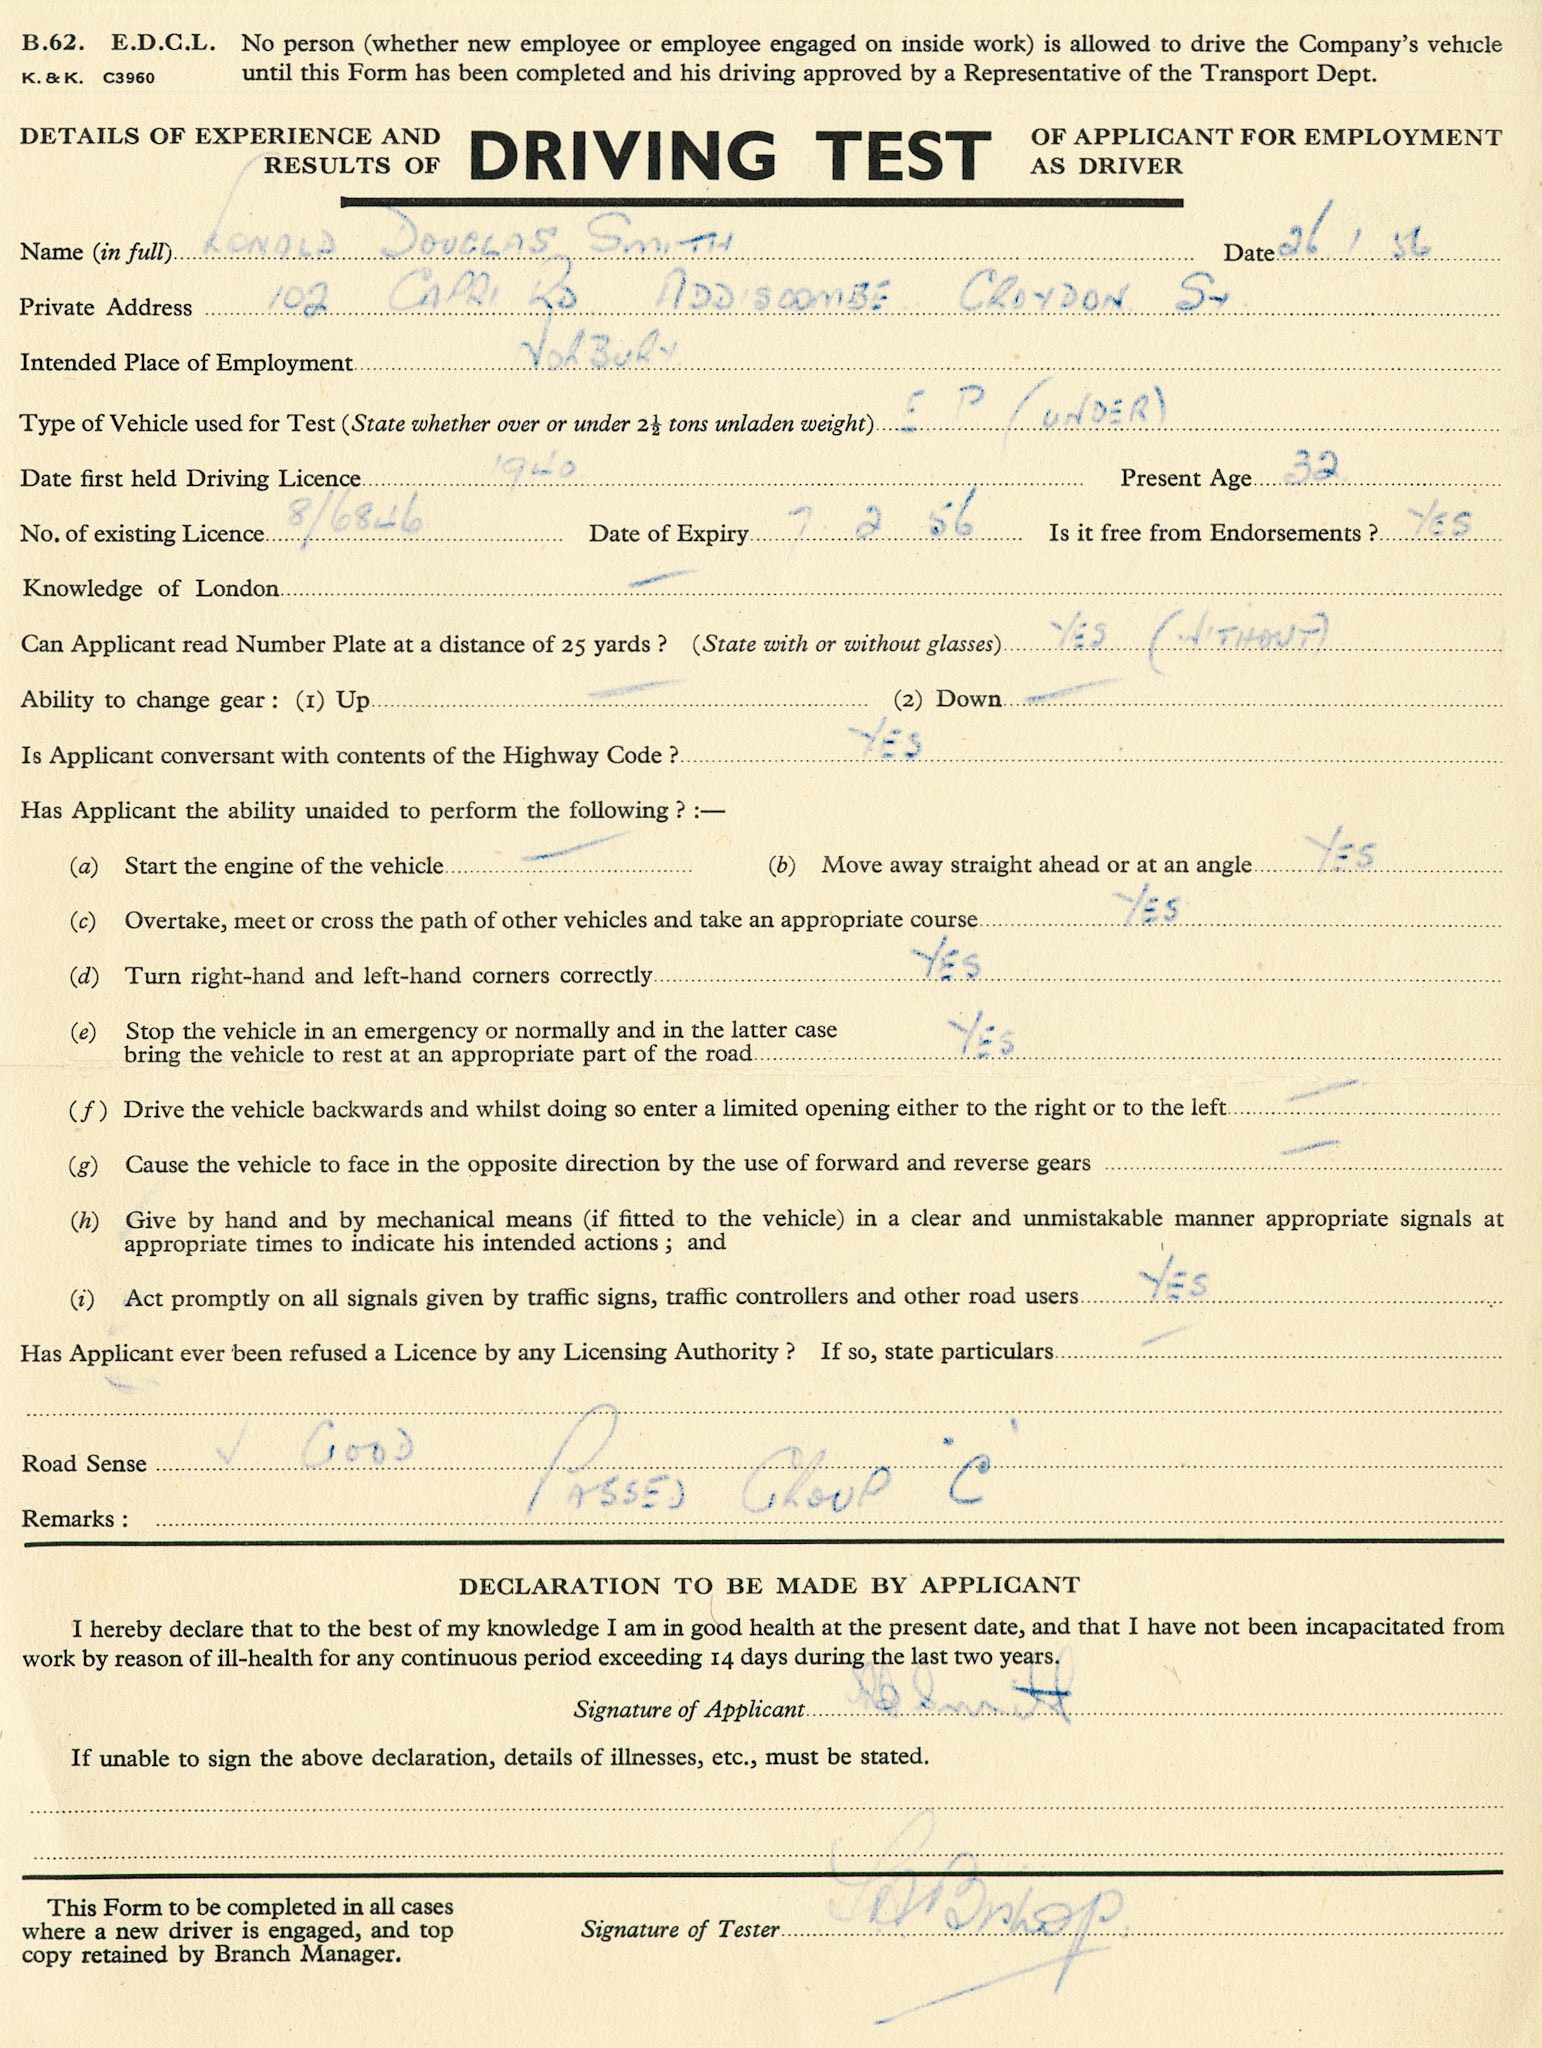 B.62. E.D.C.L. No person (whether new employee or employee engaged on inside work) is allowed to drive the Company's vehicle
K. & K. C3960 until this Form has been completed and his driving approved by a Representative of the Transport Dept.
DETAILS OF EXPERIENCE AND RESULTS OF DRIVING TEST OF APPLICANT FOR EMPLOYMENT AS DRIVER
Name (in full) RONALD DOUGLAS SMITH Date 26/1/56
Private Address 102 CAPRI RD ADDISCOMBE CROYDON SY
Intended Place of Employment NORBURY
Type of Vehicle used for Test (State whether over or under 2½ tons unladen weight) E P (UNDER)
Date first held Driving Licence 1940 Present Age 32
No. of existing Licence 8/6846 Date of Expiry 7 2 56 Is it free from Endorsements ? YES
Knowledge of London —
Can Applicant read Number Plate at a distance of 25 yards ? (State with or without glasses) YES (WITHOUT)
Ability to change gear : (1) Up — (2) Down —
Is Applicant conversant with contents of the Highway Code ? YES
Has Applicant the ability unaided to perform the following ? :—
(a) Start the engine of the vehicle — (b) Move away straight ahead or at an angle YES
(c) Overtake, meet or cross the path of other vehicles and take an appropriate course YES
(d) Turn right-hand and left-hand corners correctly YES
(e) Stop the vehicle in an emergency or normally and in the latter case
bring the vehicle to rest at an appropriate part of the road YES
(f) Drive the vehicle backwards and whilst doing so enter a limited opening either to the right or to the left —
(g) Cause the vehicle to face in the opposite direction by the use of forward and reverse gears —
(h) Give by hand and by mechanical means (if fitted to the vehicle) in a clear and unmistakable manner appropriate signals at
appropriate times to indicate his intended actions ; and
(i) Act promptly on all signals given by traffic signs, traffic controllers and other road users YES
Has Applicant ever been refused a Licence by any Licensing Authority ? If so, state particulars —
Road Sense ✓ GOOD
Remarks : PASSED GROUP "C"
DECLARATION TO BE MADE BY APPLICANT
I hereby declare that to the best of my knowledge I am in good health at the present date, and that I have not been incapacitated from
work by reason of ill-health for any continuous period exceeding 14 days during the last two years.
Signature of Applicant Smith
If unable to sign the above declaration, details of illnesses, etc., must be stated.
This Form to be completed in all cases
where a new driver is engaged, and top
copy retained by Branch Manager.
Signature of Tester Bishop